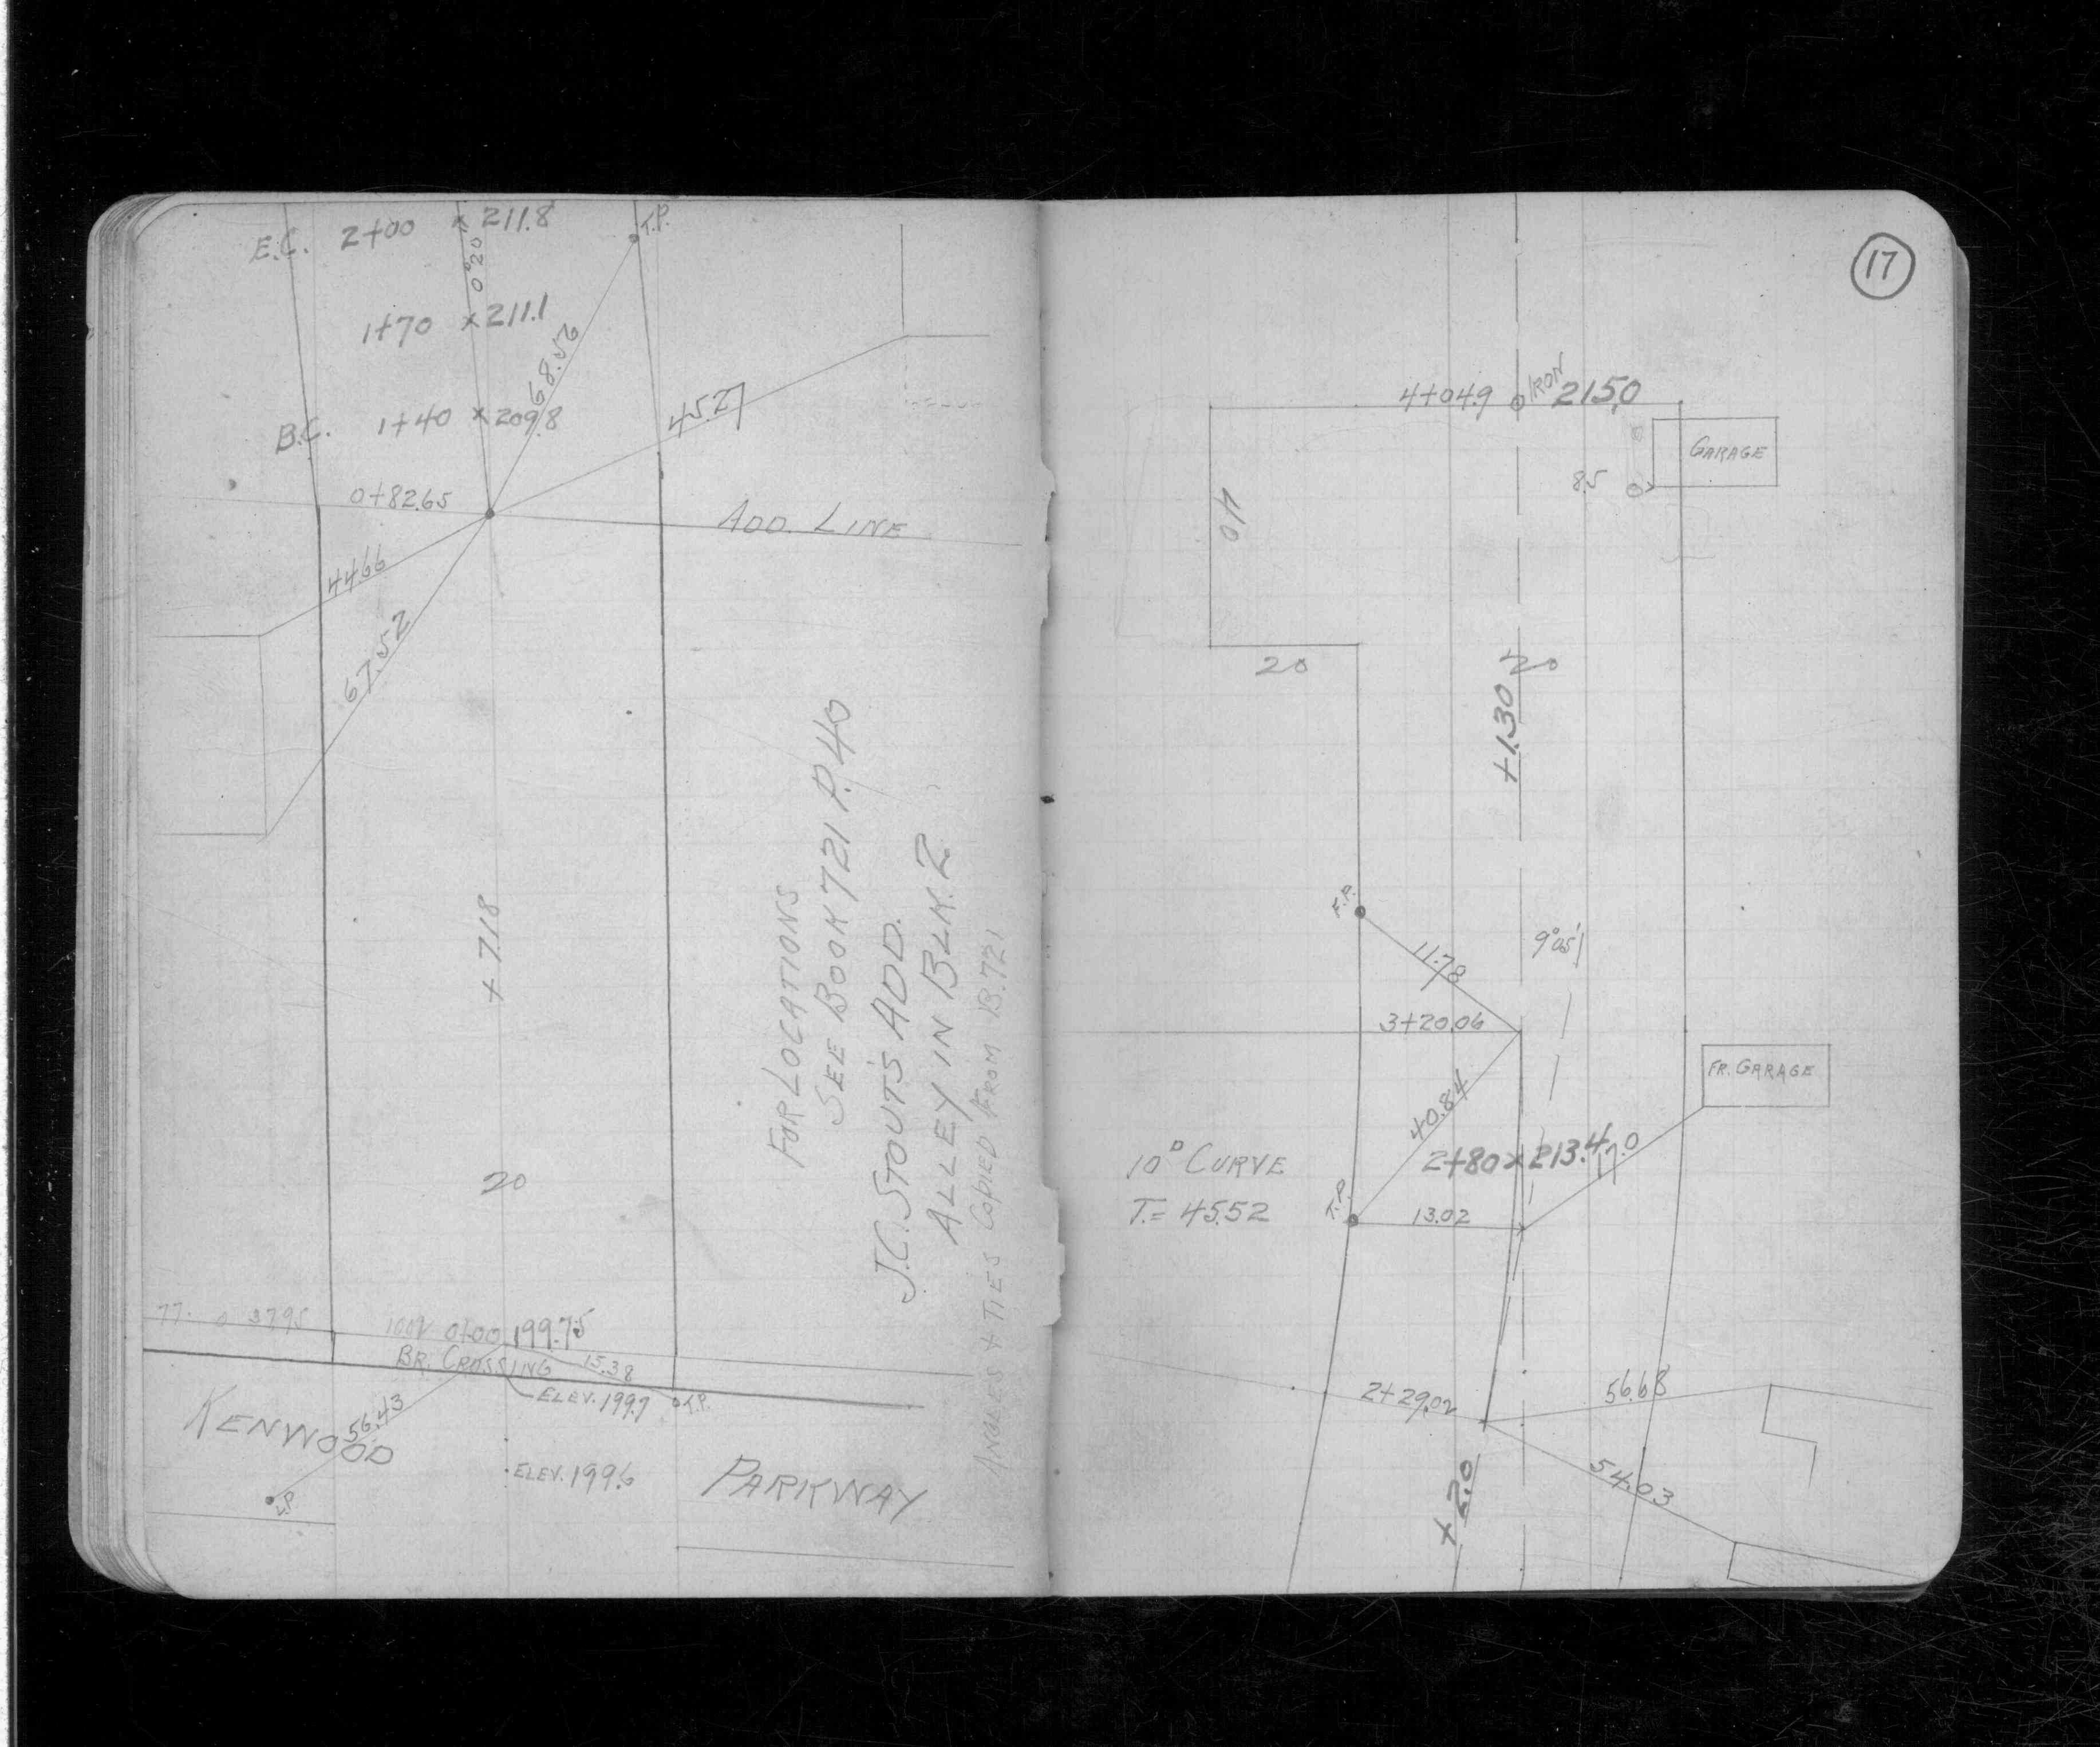 E.C. 2+00 x 211.8
T.P.
0°20'
1+70 x 211.1
68.56
B.C. 1+40 x 209.8
45.27
0+82.65
ADD. LINE
44.66
67.52
+7.18
20
FOR LOCATIONS
SEE BOOK 721 P. 40
J.C. STOUT'S ADD.
ALLEY IN BLK. 2
ANGLES & TIES COPIED FROM B. 721
37.95
0+00 199.75
BR. CROSSING
15.38
ELEV. 199.7
T.P.
KENWOOD
56.43
ELEV. 199.6
PARKWAY
17
4+04.9
IRON
215.0
GARAGE
8.5
40
20
20
+1.30
11.78
9°05'
3+20.06
FR. GARAGE
40.84
10° CURVE
2+80 x 213.4
17.0
T.= 45.52
T.P.
13.02
2+29.02
56.68
54.03
+2.0